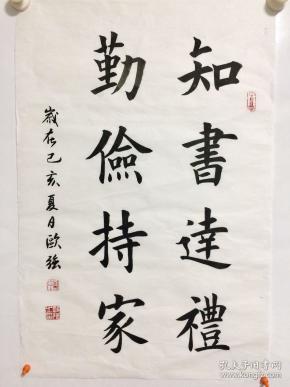 知書達禮
勤儉持家
歲在己亥夏日歐強
孔夫子旧书网